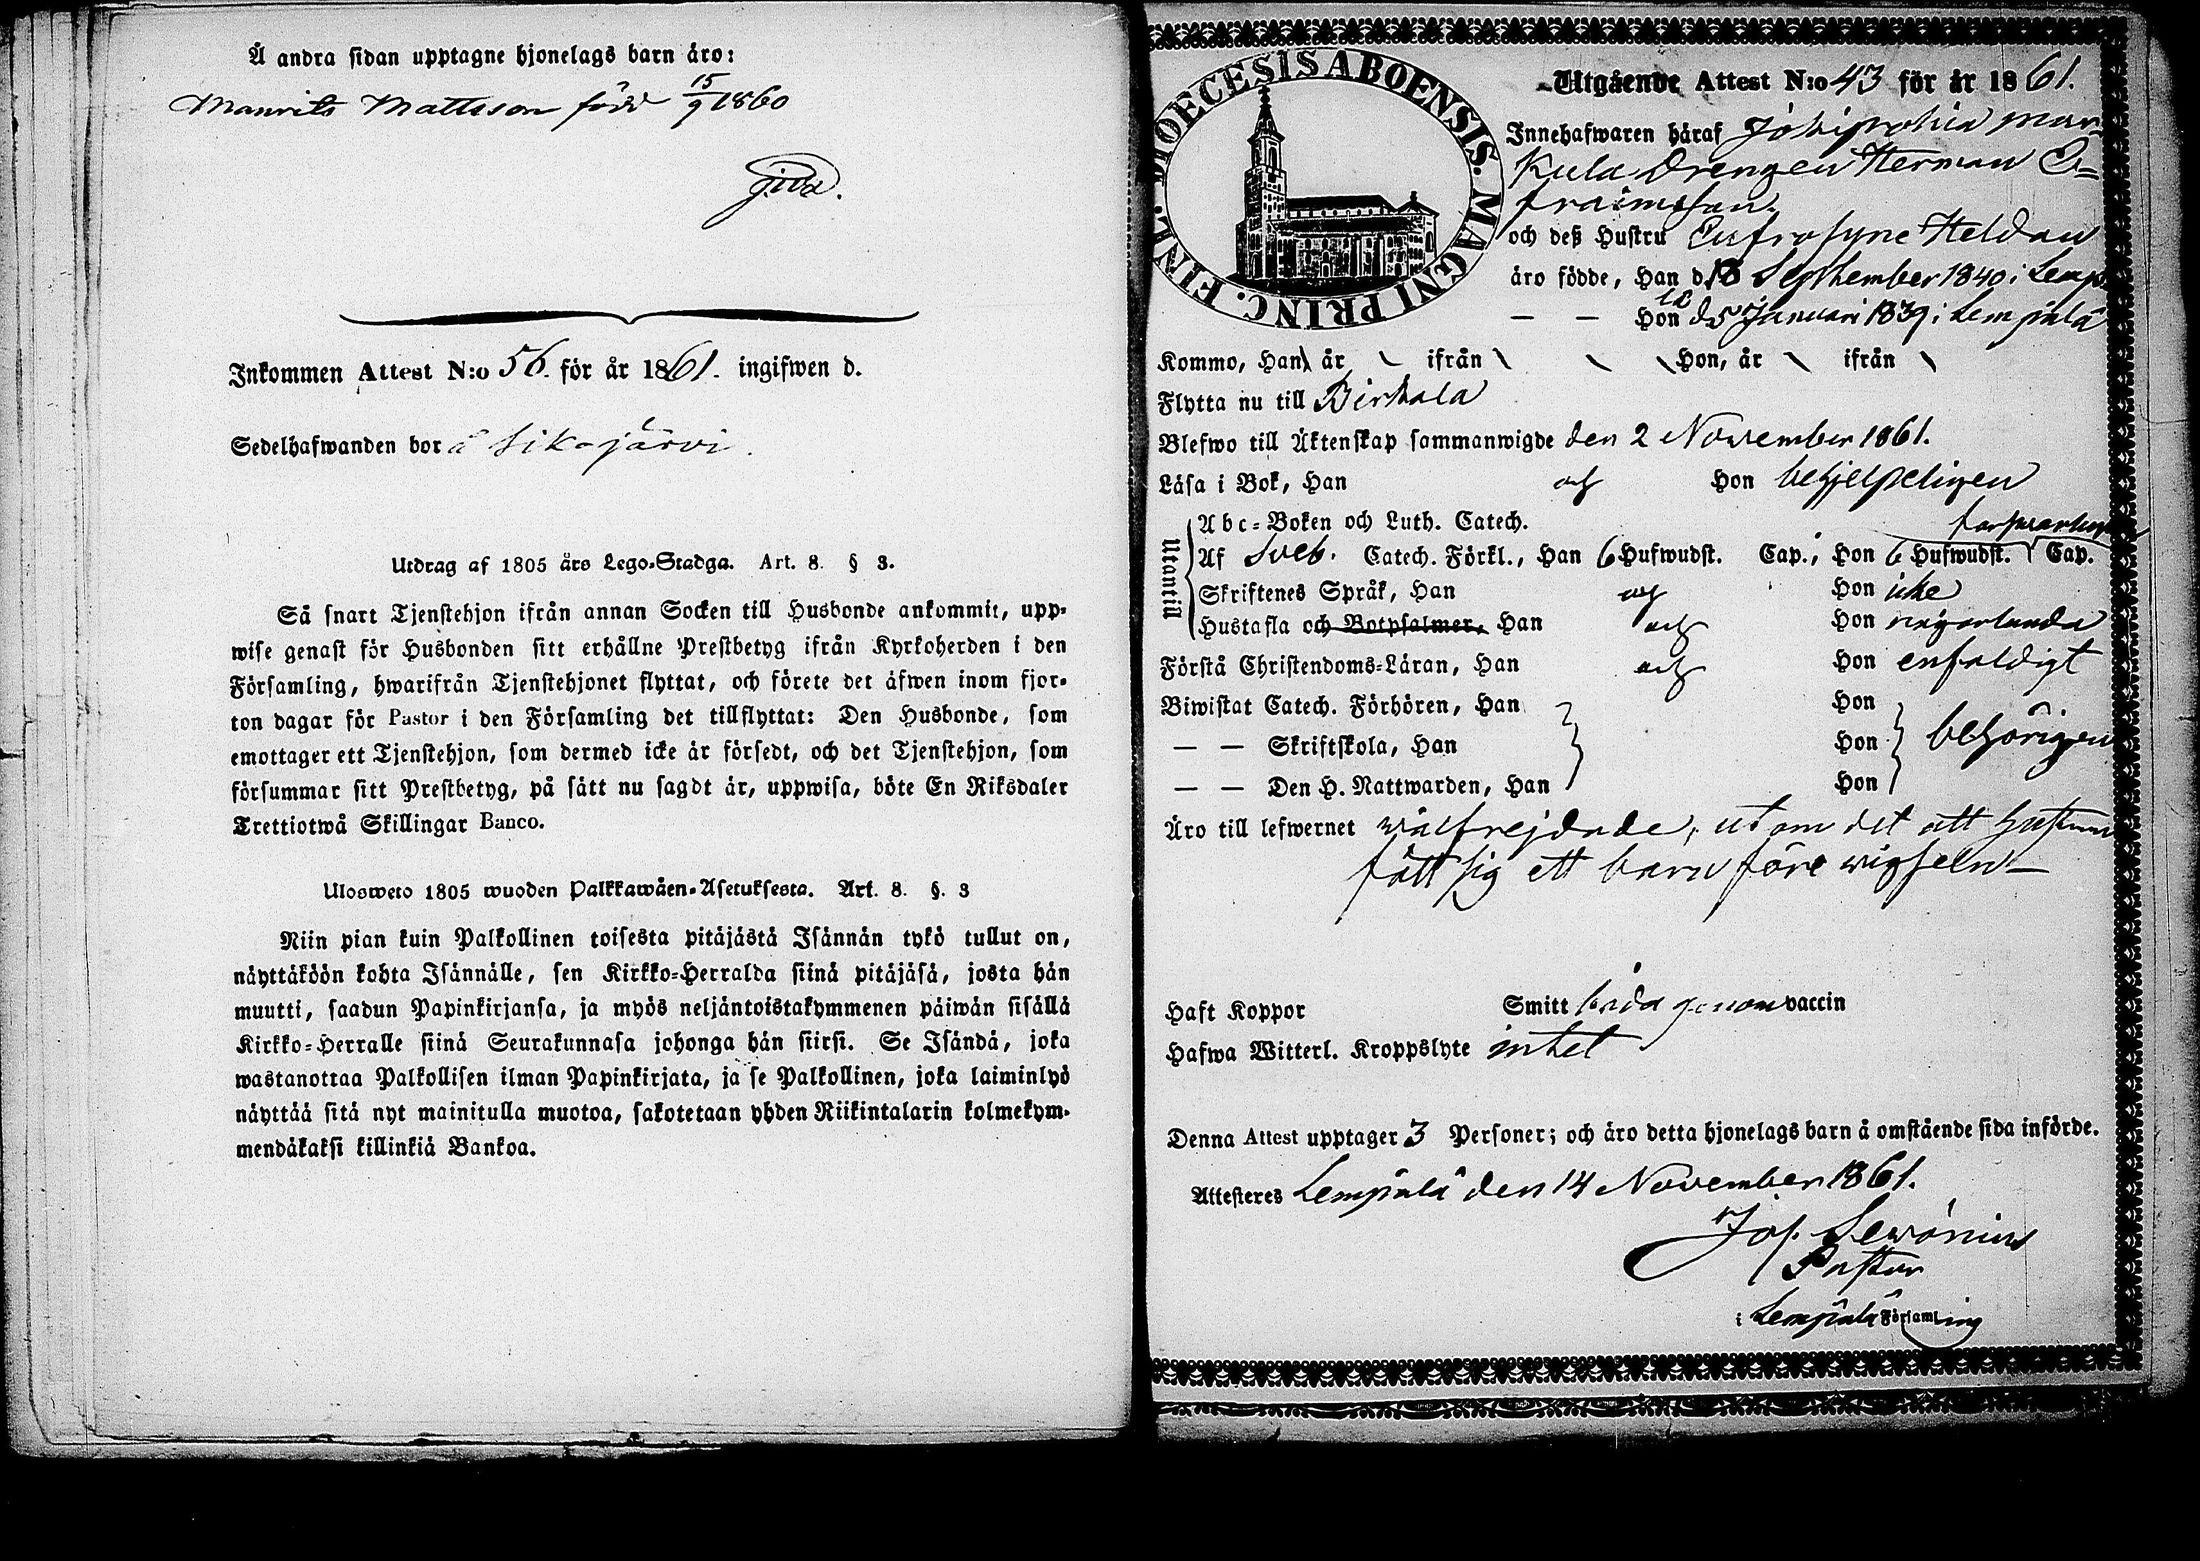 Å andra sidan upptagne hjonelags barn äro:
Maurits Mattsson född 15/9 1860
Inkommen Attest N:o 56. för år 1861. ingifwen d.
Sedelhafwanden bor å Sikojärvi.
Utdrag af 1805 års Lego-Stadga. Art. 8. § 3.
Så snart Tjenstehjon ifrån annan Socken till Husbonde ankommit, upp-
wise genast för Husbonden sitt erhållne Prestbetyg ifrån Kyrkoherden i den
Församling, hwarifrån Tjenstehjonet flyttat, och förete det äfwen inom fjor-
ton dagar för Pastor i den Församling det tillflyttat: Den Husbonde, som
emottager ett Tjenstehjon, som dermed icke är försedt, och det Tjenstehjon, som
försummar sitt Prestbetyg, på sätt nu sagdt är, uppwisa, böte En Riksdaler
Trettiotwå Skillingar Banco.
Ulosweto 1805 wuoden Palkkawäen-Asetuksesta. Art. 8. §. 3
Niin pian kuin Palkollinen toisesta pitäjästä Isännän tykö tullut on,
näyttäköön kohta Isännälle, sen Kirkko-Herralda siinä pitäjäsä, josta hän
muutti, saadun Papinkirjansa, ja myös neljäntoistakymmenen päiwän sisällä
Kirkko-Herralle siinä Seurakunnasa johonga hän siirsi. Se Isändä, joka
wastanottaa Palkollisen ilman Papinkirjata, ja se Palkollinen, joka laiminlyö
näyttää sitä nyt mainitulla muotoa, sakotetaan yhden Riikintalarin kolmekym-
mendäkaksi killinkiä Bankoa.
FINL. DIOECESIS ABOENSIS. MAGNI PRINC.
Utgående Attest N:o 43 för år 1861.
Innehafwaren häraf Jokipohia Mar-
kula Drengen Herman E=
fraimsson.
och deß Hustru Eufrosyne Heldan
äro födde, Han d. 18 September 1840 i Lemp
Hon d 5 Januari 1839 i Lempälä
Kommo, Han år ifrån Hon, år ifrån
Flytta nu till Birkala
Blefwo till Äktenskap sammanwigde den 2 November 1861.
Läsa i Bok, Han och Hon behjelpeligen
Utantill
Abc-Boken och Luth. Catech. forswarligen
Af Sveb. Catech. Förkl., Han 6 Hufwudst. Cap., Hon 6 Hufwudst. Cap.
Skriftenes Språk, Han och Hon icke
Hustafla och Botpsalmer, Han och Hon någorlunda
Förstå Christendoms-Läran, Han och Hon enfaldigt
Biwistat Catech. Förhören, Han Hon
— — Skriftskola, Han Hon behörigen
— — Den H. Nattwarden, Han Hon
Äro till lefwernet wälfrejdade, utom det att hustrun
fått sig ett barn före wigseln—
Haft Koppor Smitt båda genom vaccin
Hafwa Witterl. Kroppslyte intet
Denna Attest upptager 3 Personer; och äro detta hjonelags barn å omstående sida införde.
Attesteres Lempälä den 14 November 1861.
Jos. Sewónius
Pastor
i Lempälä Församling